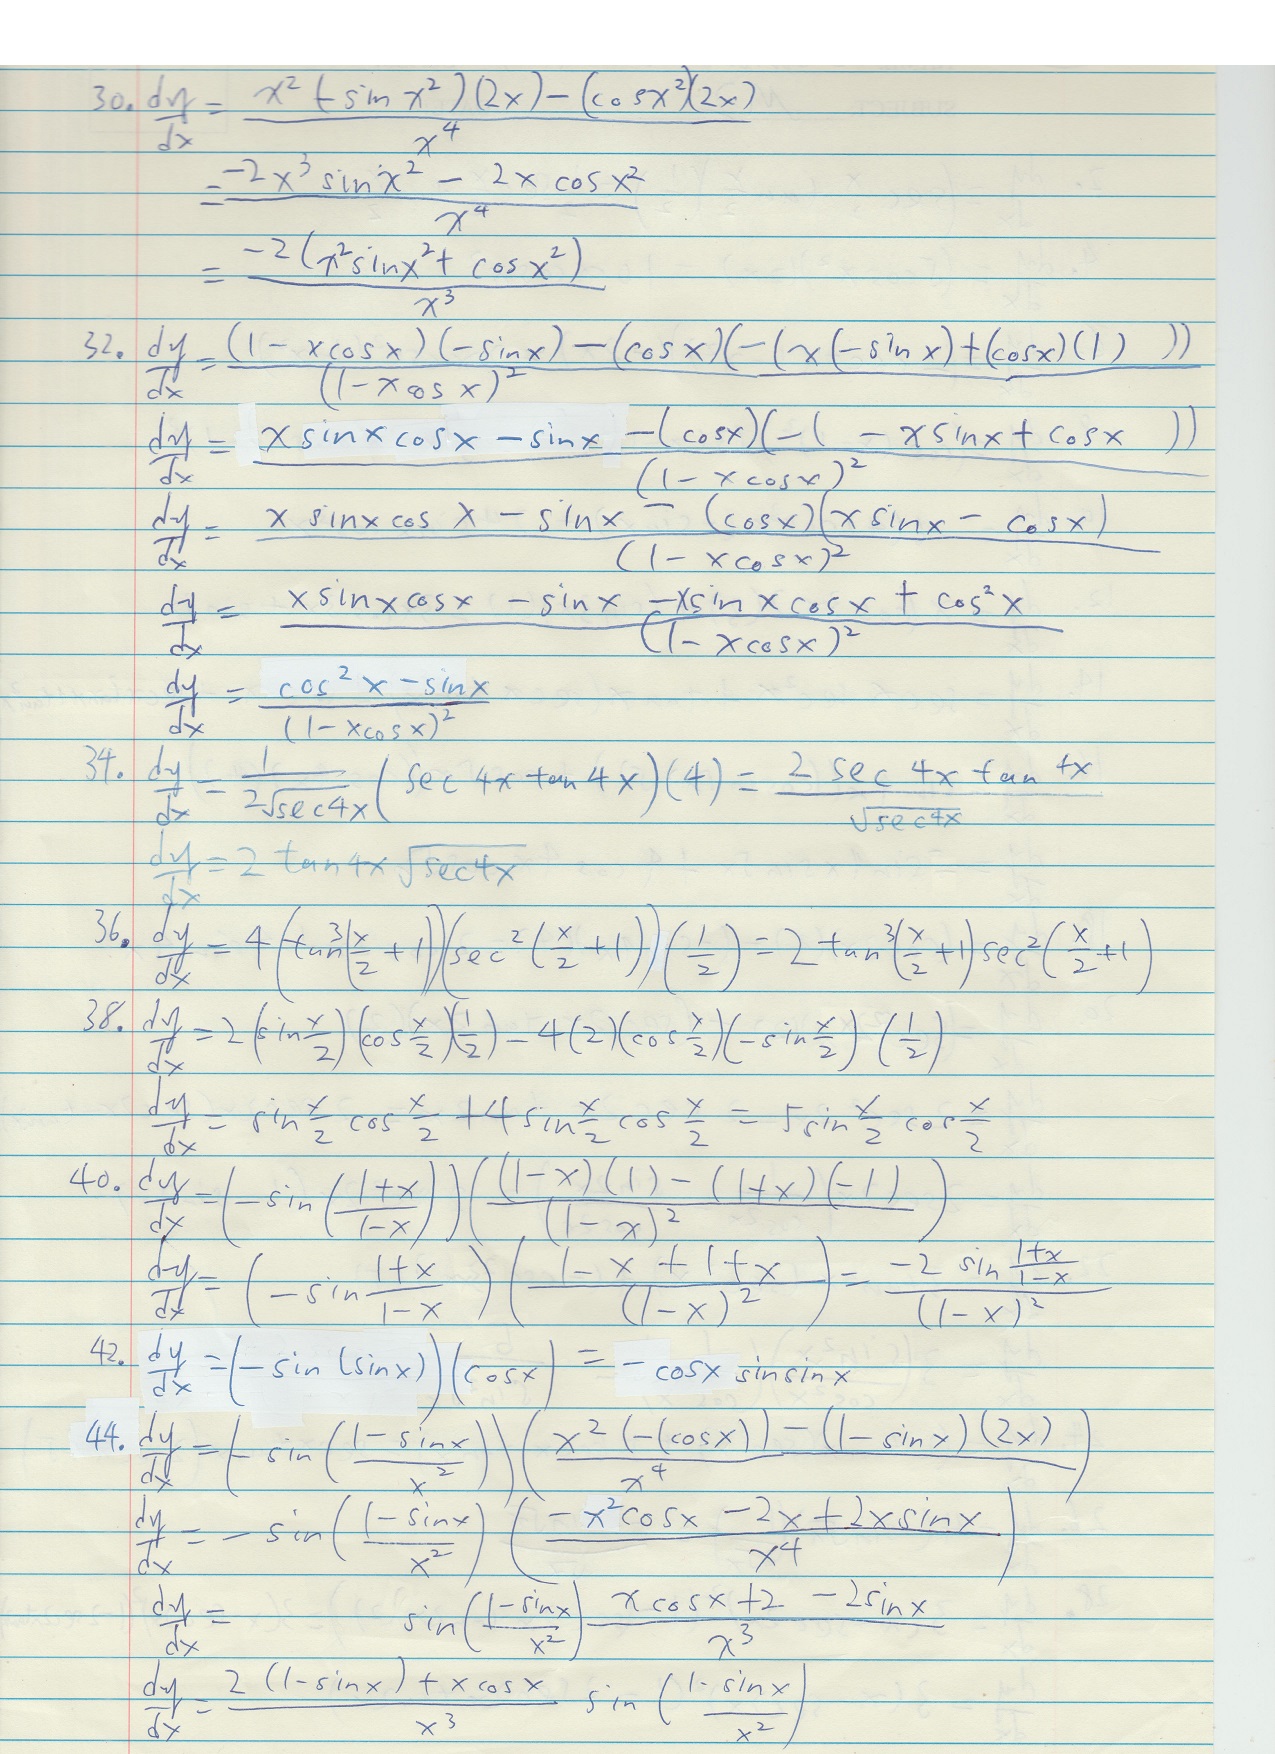 30. dy/dx = (x² (-sin x²)(2x) - (cos x²)(2x))/x⁴
= (-2x³ sin x² - 2x cos x²)/x⁴
= -2(x² sin x² + cos x²)/x³
32. dy/dx = ((1 - x cos x)(-sin x) - (cos x)(-(x(-sin x) + (cos x)(1))))/(1 - x cos x)²
dy/dx = (x sin x cos x - sin x - (cos x)(-( - x sin x + cos x )))/(1 - x cos x)²
dy/dx = (x sin x cos x - sin x - (cos x)(x sin x - cos x))/(1 - x cos x)²
dy/dx = (x sin x cos x - sin x - x sin x cos x + cos² x)/(1 - x cos x)²
dy/dx = (cos² x - sin x)/(1 - x cos x)²
34. dy/dx = 1/(2√sec 4x) (sec 4x tan 4x)(4) = (2 sec 4x tan 4x)/√sec 4x
dy/dx = 2 tan 4x √sec 4x
36. dy/dx = 4(tan³(x/2 + 1))(sec²(x/2 + 1))(1/2) = 2 tan³(x/2 + 1) sec²(x/2 + 1)
38. dy/dx = 2(sin x/2)(cos x/2)(1/2) - 4(2)(cos x/2)(-sin x/2)(1/2)
dy/dx = sin x/2 cos x/2 + 4 sin x/2 cos x/2 = 5 sin x/2 cos x/2
40. dy/dx = (-sin((1+x)/(1-x)))(((1-x)(1) - (1+x)(-1))/(1-x)²)
dy/dx = (-sin (1+x)/(1-x))((1 - x + 1 + x)/(1-x)²) = (-2 sin (1+x)/(1-x))/(1-x)²
42. dy/dx = (-sin(sin x))(cos x) = -cos x sin sin x
44. dy/dx = (-sin((1 - sin x)/x²))((x²(-(cos x)) - (1 - sin x)(2x))/x⁴)
dy/dx = -sin((1 - sin x)/x²)((-x² cos x - 2x + 2x sin x)/x⁴)
dy/dx = sin((1 - sin x)/x²) (x cos x + 2 - 2 sin x)/x³
dy/dx = (2(1 - sin x) + x cos x)/x³ sin((1 - sin x)/x²)